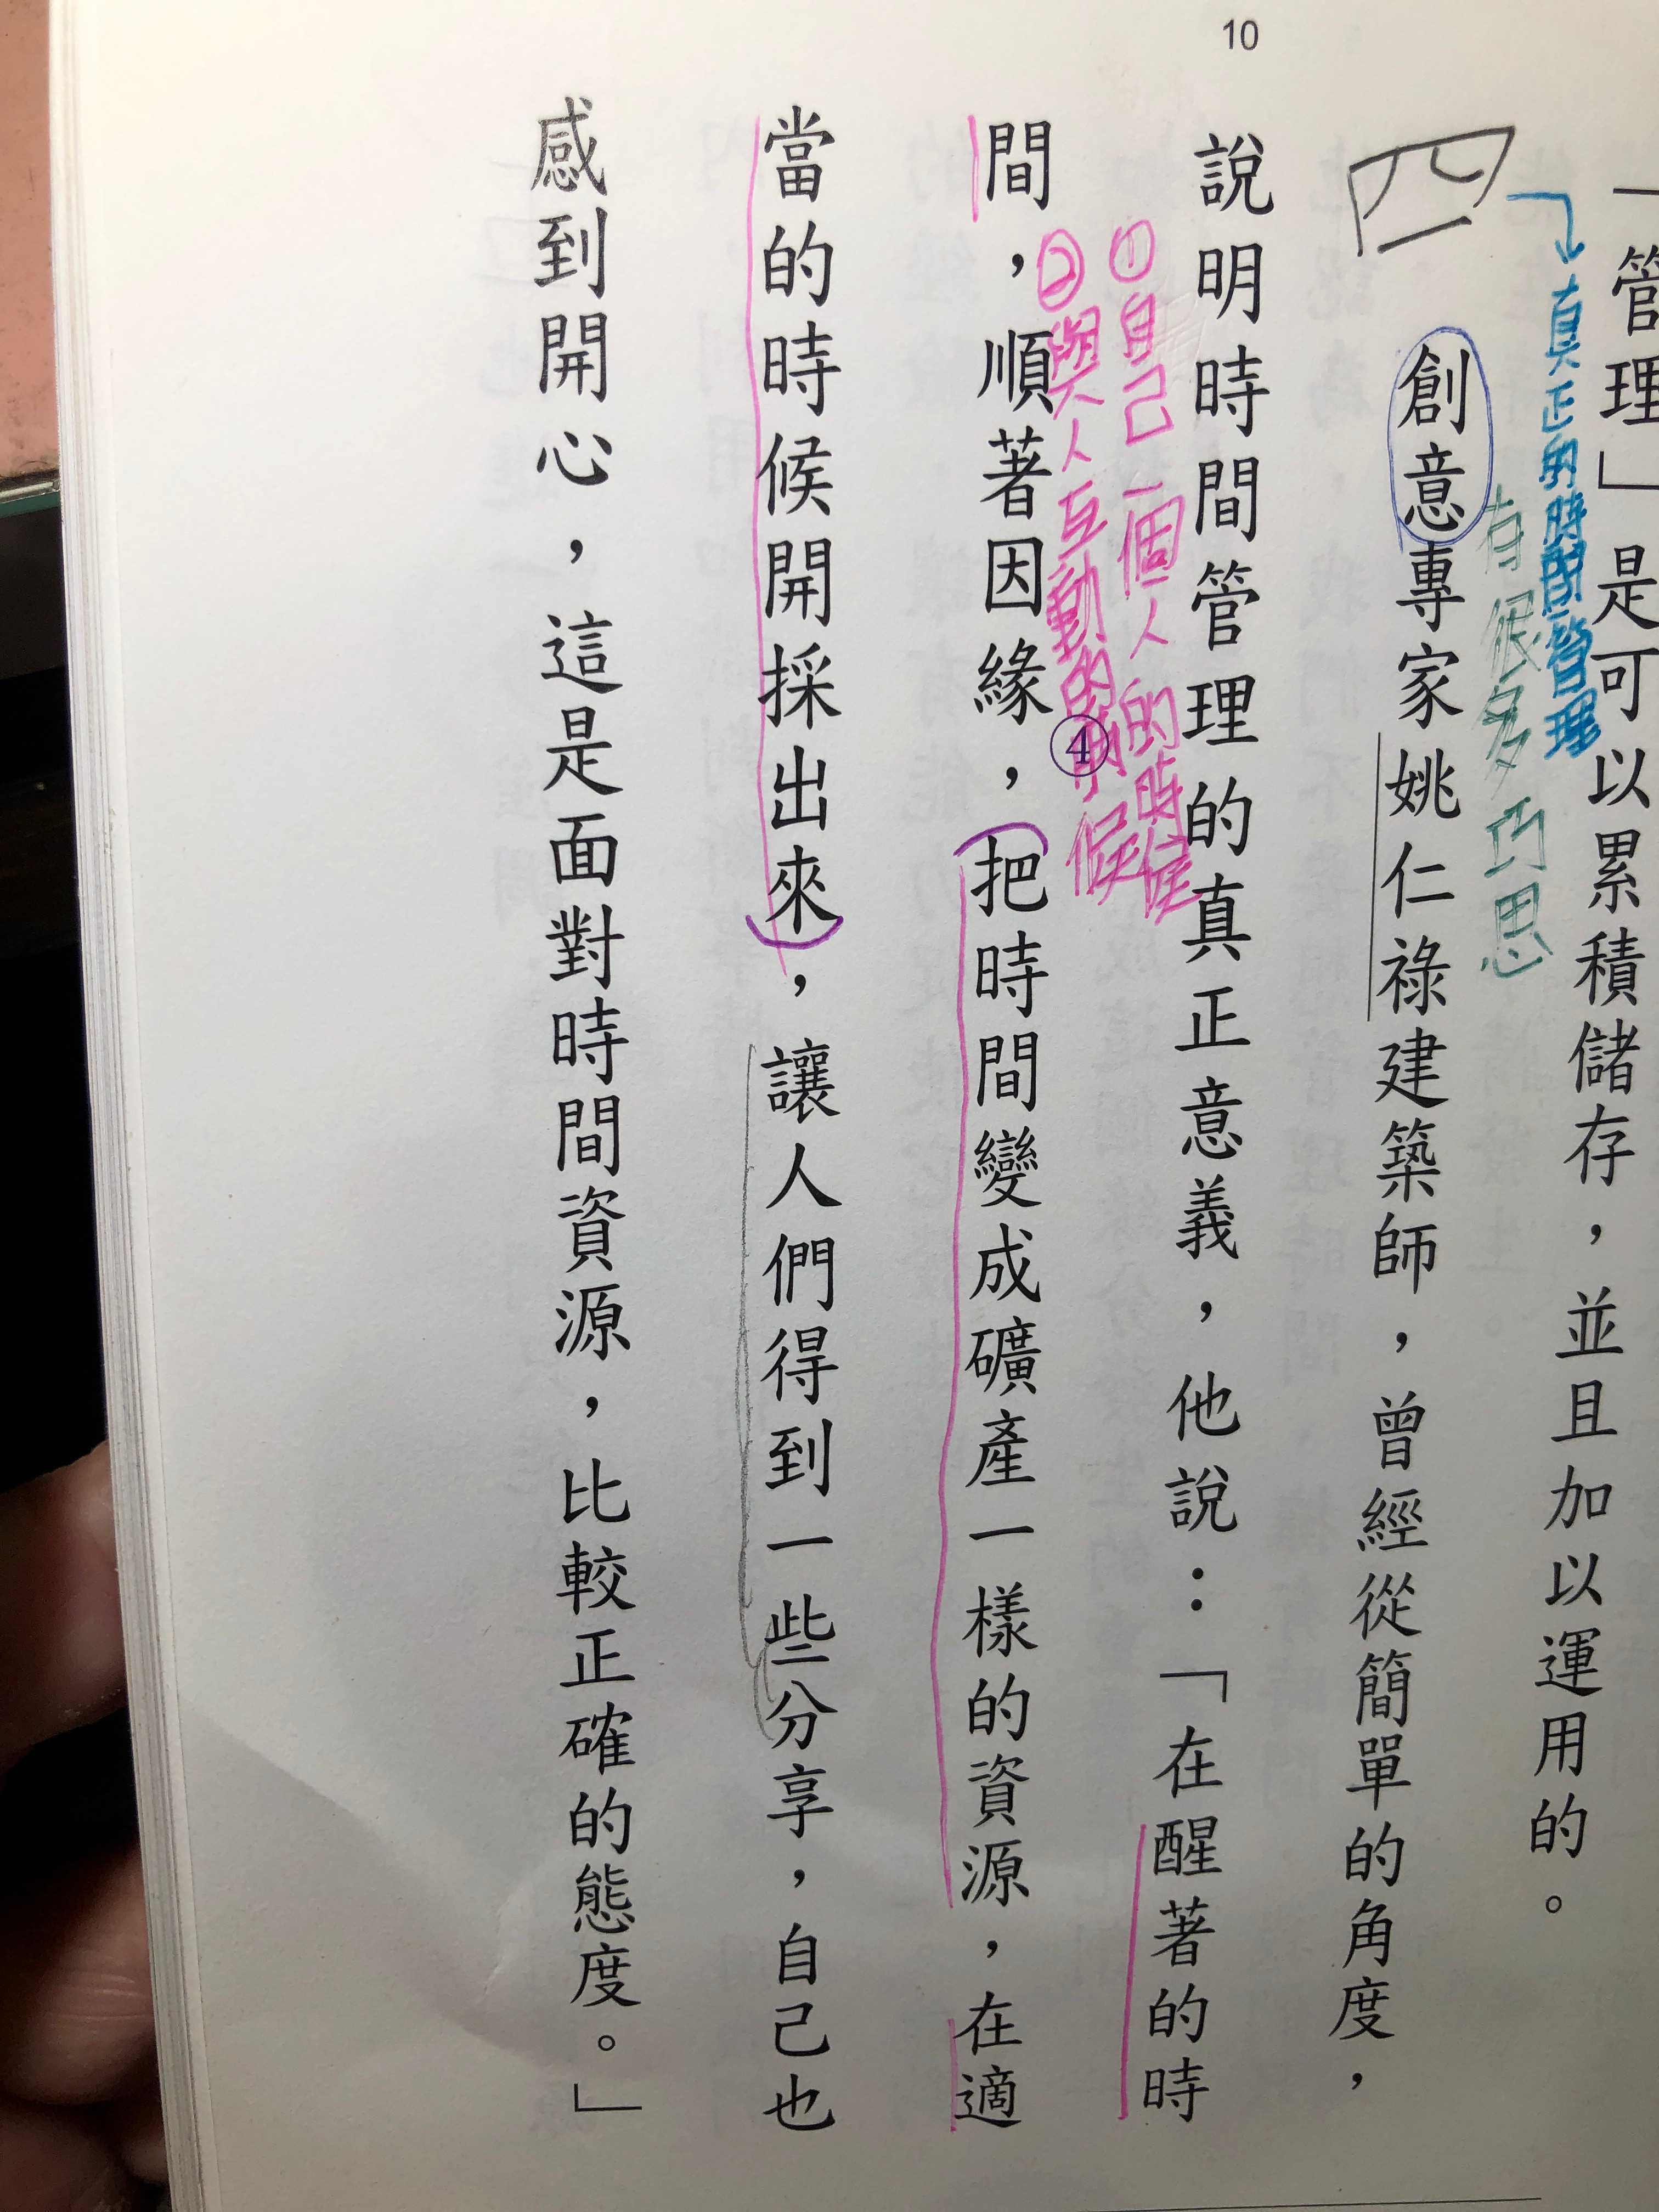 10
「管理」是可以累積儲存，並且加以運用的。
四
真正的時間管理
有很多巧思
創意專家姚仁祿建築師，曾經從簡單的角度，
說明時間管理的真正意義，他說：「在醒著的時
①自己一個人的時候
②與人互動的時候
④
間，順著因緣，把時間變成礦產一樣的資源，在適
當的時候開採出來，讓人們得到一些分享，自己也
感到開心，這是面對時間資源，比較正確的態度。」